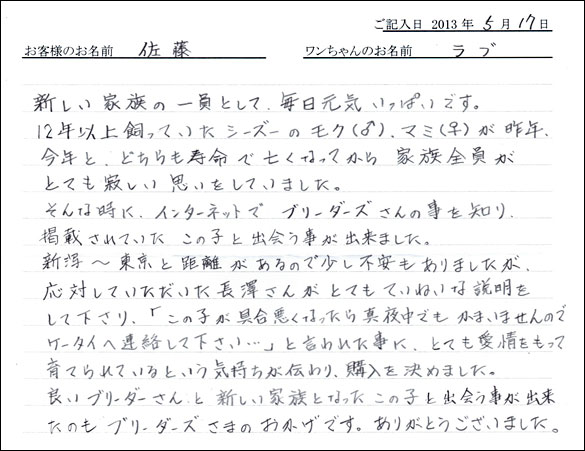 ご記入日 2013年 5月17日
お客様のお名前 佐藤 ワンちゃんのお名前 ラブ
新しい家族の一員として、毎日元気いっぱいです。
12年以上飼っていたシーズーのモク(♂)、マミ(♀)が昨年、
今年と、どちらも寿命で亡くなってから家族全員が
とても寂しい思いをしていました。
そんな時に、インターネットでブリーダーズさんの事を知り、
掲載されていたこの子と出会う事が出来ました。
新潟〜東京と距離があるので少し不安もありましたが、
応対していただいた長澤さんがとてもていねいな説明を
して下さり、「この子が具合悪くなったら真夜中でもかまいませんので
ケータイへ連絡して下さい…」と言われた事に、とても愛情をもって
育てられているという気持ちが伝わり、購入を決めました。
良いブリーダーさんと新しい家族となったこの子と出会う事が出来
たのもブリーダーズさまのおかげです。ありがとうございました。